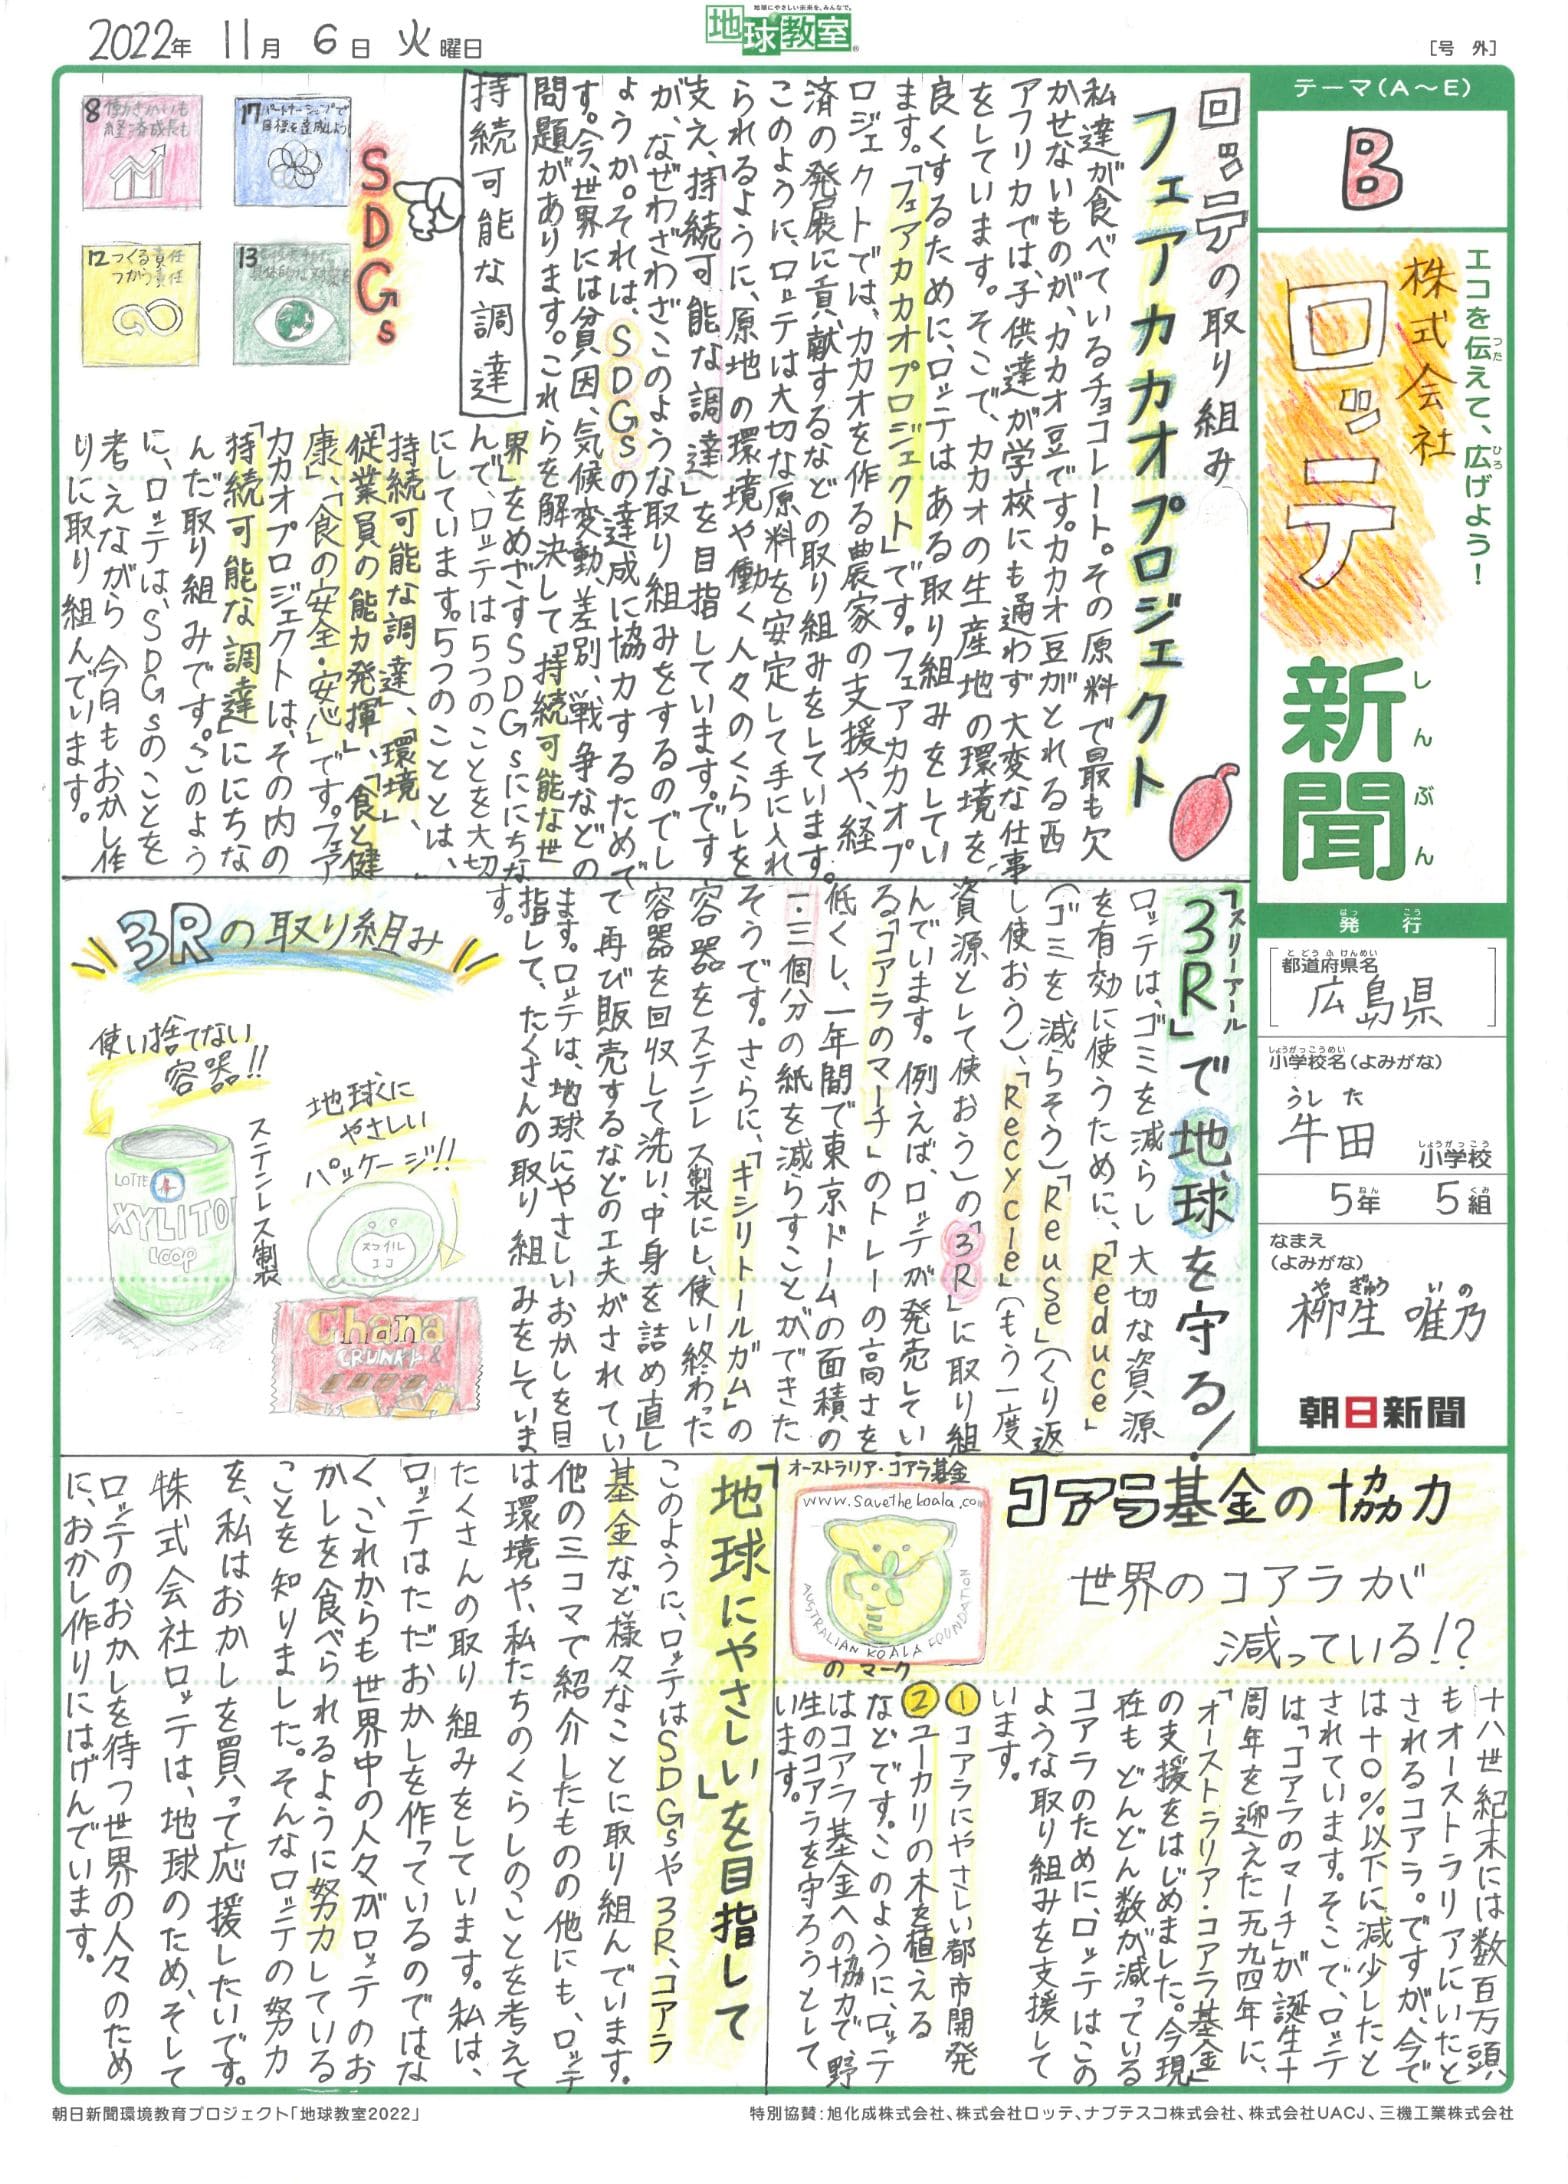 2022年 11月 6日 火曜日
地球にやさしい未来を、みんなで。
地球教室
［号 外］
テーマ(A～E)
B
エコを伝えて、広げよう！
つた
ひろ
株式会社
ロッテ
新聞
しんぶん
発行
はっこう
都道府県名
とどうふけんめい
広島県
小学校名(よみがな)
しょうがっこうめい
うした
牛田
小学校
しょうがっこう
5年 5組
ねん くみ
なまえ
(よみがな)
やぎゅう いの
柳生 唯乃
朝日新聞
ロッテの取り組み
フェアカカオプロジェクト
私達が食べているチョコレート。その原料で最も欠
かせないものが、カカオ豆です。カカオ豆がとれる西
アフリカでは、子供達が学校にも通わず大変な仕事
をしています。そこで、カカオの生産地の環境を
良くするために、ロッテはある取り組みをしてい
ます。「フェアカカオプロジェクト」です。フェアカカオプ
ロジェクトでは、カカオを作る農家の支援や、経
済の発展に貢献するなどの取り組みをしています。
このように、ロッテは大切な原料を安定して手に入れ
られるように、原地の環境や働く人々のくらしを
支え、「持続可能な調達」を目指しています。です
が、なぜわざわざこのような取り組みをするのでし
ょうか。それは、SDGsの達成に協力するためで
す。今、世界には貧困、気候変動、差別、戦争などの
問題があります。これらを解決して「持続可能なせ
界」をめざすSDGsにちな
んで、ロッテは5つのことを大切
にしています。5つのこととは、
「持続可能な調達」、「環境」、
「従業員の能力発揮」、「食と健
康」、「食の安全・安心」です。フェア
カカオプロジェクトは、その内の
「持続可能な調達」ににちな
んだ取り組みです。このよう
に、ロッテは、SDGsのことを
考えながら今日もおかし作
りに取り組んでいます。
持続可能な調達
SDGs
8 働きがいも
経済成長も
17 パートナーシップで
目標を達成しよう
12 つくる責任
つかう責任
13
「3R」で地球を守る！
スリーアール
ロッテは、ゴミを減らし大切な資源
を有効に使うために、「Reduce」
(ゴミを減らそう)「Reuse」(くり返
し使おう)、「Recycle」(もう一度
資源として使おう)の「3R」に取り組
んでいます。例えば、ロッテが発売してい
る「コアラのマーチ」のトレーの高さを
低くし、一年間で東京ドームの面積の
一・三個分の紙を減らすことができた
そうです。さらに、「キシリトールガム」の
容器をステンレス製にし、使い終わった
容器を回収して洗い、中身を詰め直し
て再び販売するなどの工夫がされてい
ます。ロッテは、地球にやさしいおかしを目
指して、たくさんの取り組みをしていま
す。
3Rの取り組み
使い捨てない
容器!!
地球くに
やさしい
パッケージ!!
ステンレス製
LOTTE
XYLITO
Loop
スマイル
エコ
Ghana
CRUNKY &
コアラ基金の協力
世界のコアラが
減っている!?
オーストラリア・コアラ基金
www.savethekoala.com
AUSTRALIAN KOALA FOUNDATION
のマーク
十八世紀末には数百万頭
もオーストラリアにいたと
されるコアラ。ですが、今で
は十〇%以下に減少したと
されています。そこで、ロッテ
は「コアラのマーチ」が誕生十
周年を迎えた一九九四年に、
「オーストラリア・コアラ基金」
の支援をはじめました。今現
在もどんどん数が減っている
コアラのために、ロッテはこの
ような取り組みを支援して
います。
①コアラにやさしい都市開発
②ユーカリの木を植える
などです。このように、ロッテ
はコアラ基金への協力で、野
生のコアラを守ろうとして
います。
「地球にやさしい」を目指して
このように、ロッテはSDGsや3R、コアラ
基金など様々なことに取り組んでいます。
他の三コマで紹介したものの他にも、ロッテ
は環境や、私たちのくらしのことを考えて
たくさんの取り組みをしています。私は、
ロッテはただおかしを作っているのではな
く、これからも世界中の人々がロッテのお
かしを食べられるように努力している
ことを知りました。そんなロッテの努力
を、私はおかしを買って応援したいです。
株式会社ロッテは、地球のため、そして
ロッテのおかしを待つ世界の人々のため
に、おかし作りにはげんでいます。
朝日新聞環境教育プロジェクト「地球教室2022」
特別協賛：旭化成株式会社、株式会社ロッテ、ナブテスコ株式会社、株式会社UACJ、三機工業株式会社